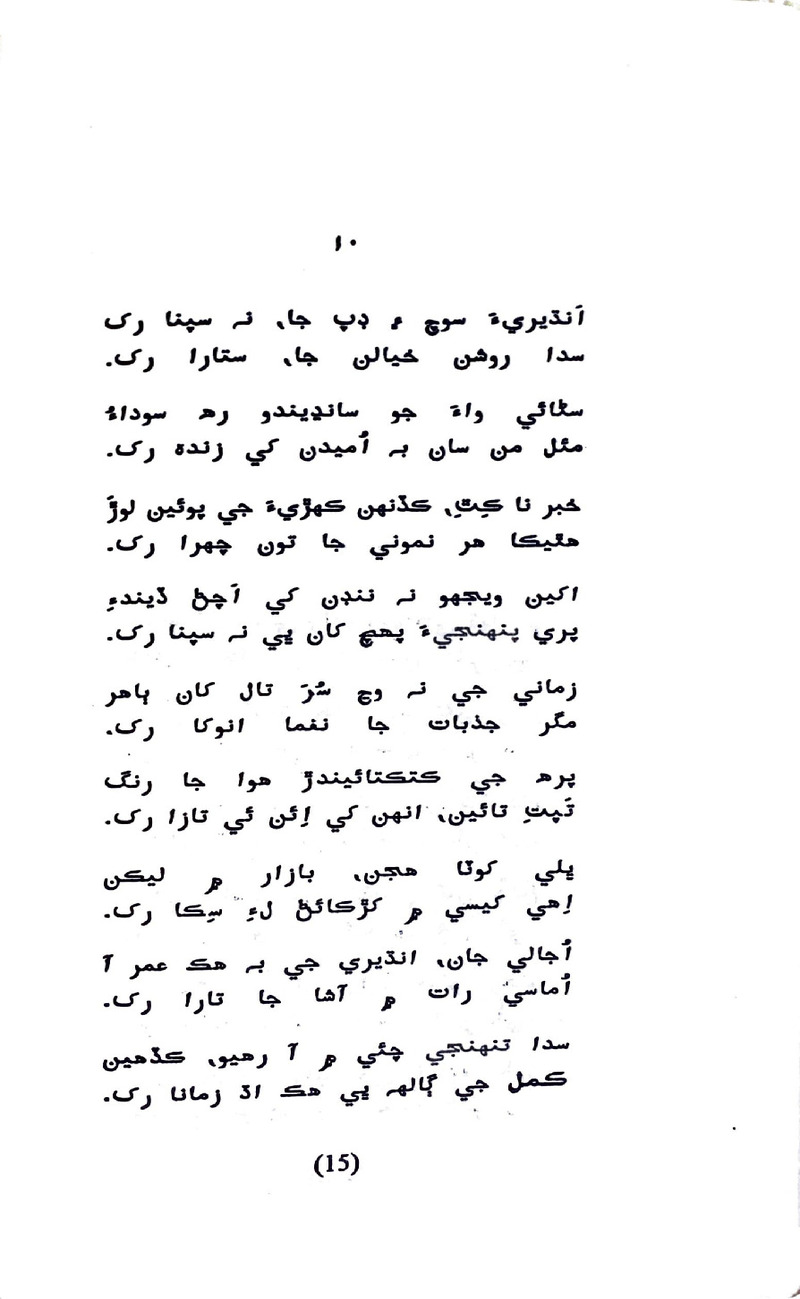 ۱۰
اَنڌيريءَ سوچ ۽ ڊپ جا، نہ سپنا رک
سدا روشن خيالن جا، ستارا رک.
سڻائي واءَ جو سانڍيندو رھ سوداءُ
مئل من سان بہ اُميدن کي زندہ رک.
خبر نا ڪِٿِ، ڪڏنهن ڪهڙيءَ جي پوئين لوڙَ
هٿيڪا هر نموني جا تون چهرا رک.
اکين ويجهو نہ ننڊن کي اَچڻ ڏيندءِ
پري پنهنجيءَ پهچ کان ڀي نہ سپنا رک.
زماني جي نہ وڃ سُرَ تال کان ٻاهر
مگر جذبات جا نغما انوکا رک.
پرھ جي ڪتڪتائيندڙ هوا جا رنگ
تَپتِ تائين، انهن کي اِئن ئي تازا رک.
ڀلي کوٽا هجن، بازار ۾ ليڪن
اِهي کيسي ۾ کڙڪائڻ لءِ سِڪا رک.
اُجالي جان، انڌيري جي بہ هڪ عمر آ
اُماسيَ رات ۾ آشا جا تارا رک.
سدا تنهنجي چئي ۾ آ رهيو، ڪڏهين
ڪمل جي ڳالهہ ڀي هڪ اڌ زمانا رک.
(15)